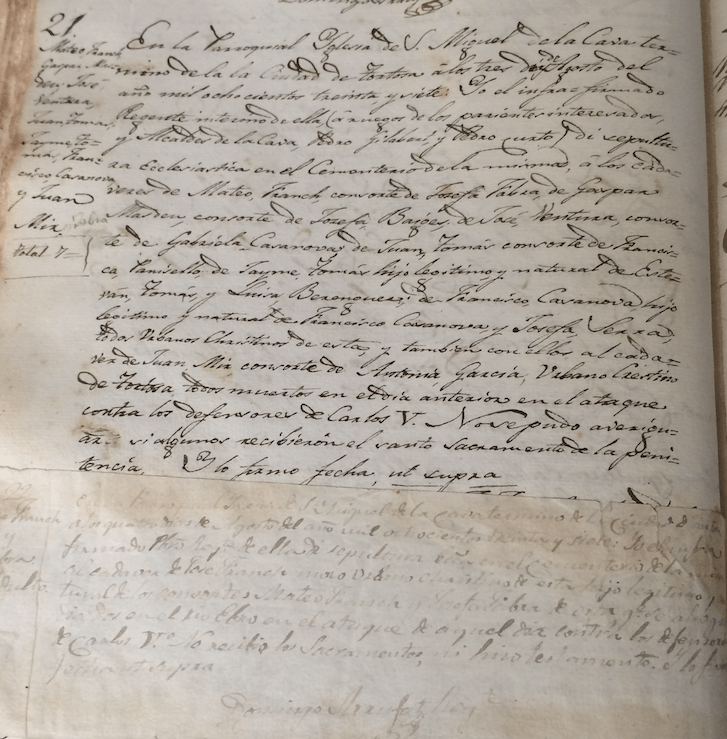 21
Mateo Franch
Gaspar Mas-
deu, José
Ventura,
Juan Tomas,
Jayme to-
mas, Fran-
cisco Casanova
y Juan
Mir
total 7=
En la Parroquial Yglesia de S. Miguel de la Cava ter-
mino de la Ciudad de Tortosa á los tres de Agosto del
año mil ochocientos treinta y siete: Yo el infrafirmado
Regente interino de ella (á ruegos de los parientes interesados,
y Alcaldes de la Cava, Pedro Gilabert, y Pedro Curto) dí sepultu-
ra Ecleciastica en el Cementerio de la misma, á los cada-
veres de Mateo Franch consorte de Josefa Fabra, de Gaspar
Masdeu consorte de Josefa Bargés, de José Ventura, consor-
te de Gabriela Casanova, de Juan Tomás consorte de Francis-
ca Panisello, de Jayme Tomás hijo legitimo y natural de Este-
van Tomás, y Luisa Berenguer; de Francisco Casanova, hijo
legitimo y natural de Francisco Casanova y Josefa Serra,
todos Urbanos Christinos de esta, y tambien con ellos, al cada-
ver de Juan Mir consorte de Antonia Garcia, Urbano Cristino
de Tortosa todos muertos en el dia anterior en el ataque
contra los defensores de Carlos V. No se pudo averigu-
ar si algunos recibierón el santo Sacramento de la peni-
tencia. Y lo firmo fecha, ut supra
Franch
y
En la Parroquial de S. Miguel de la Cava termino de la Ciudad de
a los quatro dias de Agosto del año mil ochocientos treinta y siete: Yo el infra
firmado Pbro. de ella dí sepultura en el cementerio de la
al cadaver de José Franch mozo Urbano christino de esta hijo legitimo y
tural de los consortes Mateo Franch y Josefa Fabra de esta que se aho
en el rio Ebro en el ataque de aquel dia contra los defensores
de Carlos V.º No recibió los Sacramentos, ni hizo testamento. Y lo fir
fecha ut supra
Domingo